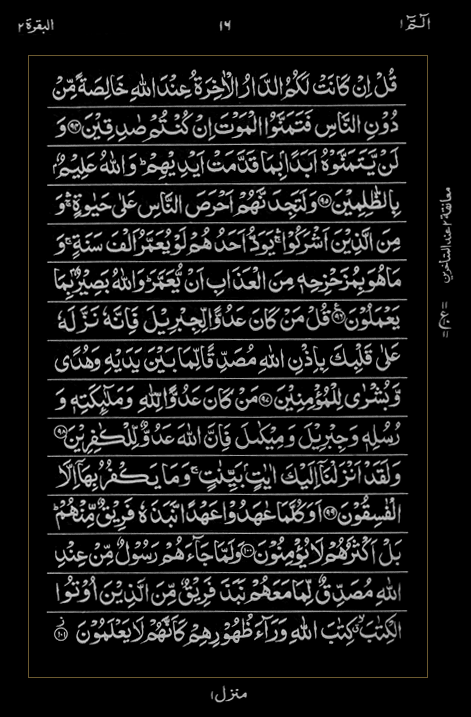 الٓمّٓ ۱ ۱۶ البقرة ۲
قُلْ اِنْ كَانَتْ لَكُمُ الدَّارُ الْاٰخِرَةُ عِنْدَ اللّٰهِ خَالِصَةً مِّنْ
دُوْنِ النَّاسِ فَتَمَنَّوُا الْمَوْتَ اِنْ كُنْتُمْ صٰدِقِيْنَ ﴿۹۴﴾ وَ
لَنْ يَّتَمَنَّوْهُ اَبَدًۢا بِمَا قَدَّمَتْ اَيْدِيْهِمْ ؕ وَاللّٰهُ عَلِيْمٌۢ
بِالظّٰلِمِيْنَ ﴿۹۵﴾ وَلَتَجِدَنَّهُمْ اَحْرَصَ النَّاسِ عَلٰى حَيٰوةٍ ۛۚ وَ
مِنَ الَّذِيْنَ اَشْرَكُوْا ۛۚ يَوَدُّ اَحَدُهُمْ لَوْ يُعَمَّرُ اَلْفَ سَنَةٍ ۚ وَ
مَا هُوَ بِمُزَحْزِحِهٖ مِنَ الْعَذَابِ اَنْ يُّعَمَّرَ ؕ وَاللّٰهُ بَصِيْرٌۢ بِمَا
يَعْمَلُوْنَ ﴿۹۶﴾ قُلْ مَنْ كَانَ عَدُوًّا لِّجِبْرِيْلَ فَاِنَّهٗ نَزَّلَهٗ
عَلٰى قَلْبِكَ بِاِذْنِ اللّٰهِ مُصَدِّقًا لِّمَا بَيْنَ يَدَيْهِ وَهُدًى
وَّبُشْرٰى لِلْمُؤْمِنِيْنَ ﴿۹۷﴾ مَنْ كَانَ عَدُوًّا لِّلّٰهِ وَمَلٰٓئِكَتِهٖ وَ
رُسُلِهٖ وَجِبْرِيْلَ وَمِيْكٰىلَ فَاِنَّ اللّٰهَ عَدُوٌّ لِّلْكٰفِرِيْنَ ﴿۹۸﴾
وَلَقَدْ اَنْزَلْنَاۤ اِلَيْكَ اٰيٰتٍۭ بَيِّنٰتٍ ۚ وَمَا يَكْفُرُ بِهَاۤ اِلَّا
الْفٰسِقُوْنَ ﴿۹۹﴾ اَوَكُلَّمَا عٰهَدُوْا عَهْدًا نَّبَذَهٗ فَرِيْقٌ مِّنْهُمْ ؕ
بَلْ اَكْثَرُهُمْ لَا يُؤْمِنُوْنَ ﴿۱۰۰﴾ وَلَمَّا جَآءَهُمْ رَسُوْلٌ مِّنْ عِنْدِ
اللّٰهِ مُصَدِّقٌ لِّمَا مَعَهُمْ نَبَذَ فَرِيْقٌ مِّنَ الَّذِيْنَ اُوْتُوا
الْكِتٰبَ ۙۗ كِتٰبَ اللّٰهِ وَرَآءَ ظُهُوْرِهِمْ كَاَنَّهُمْ لَا يَعْلَمُوْنَ ﴿۱۰۱﴾
معانقة ۲ عند المتاخرين
منزل ۱